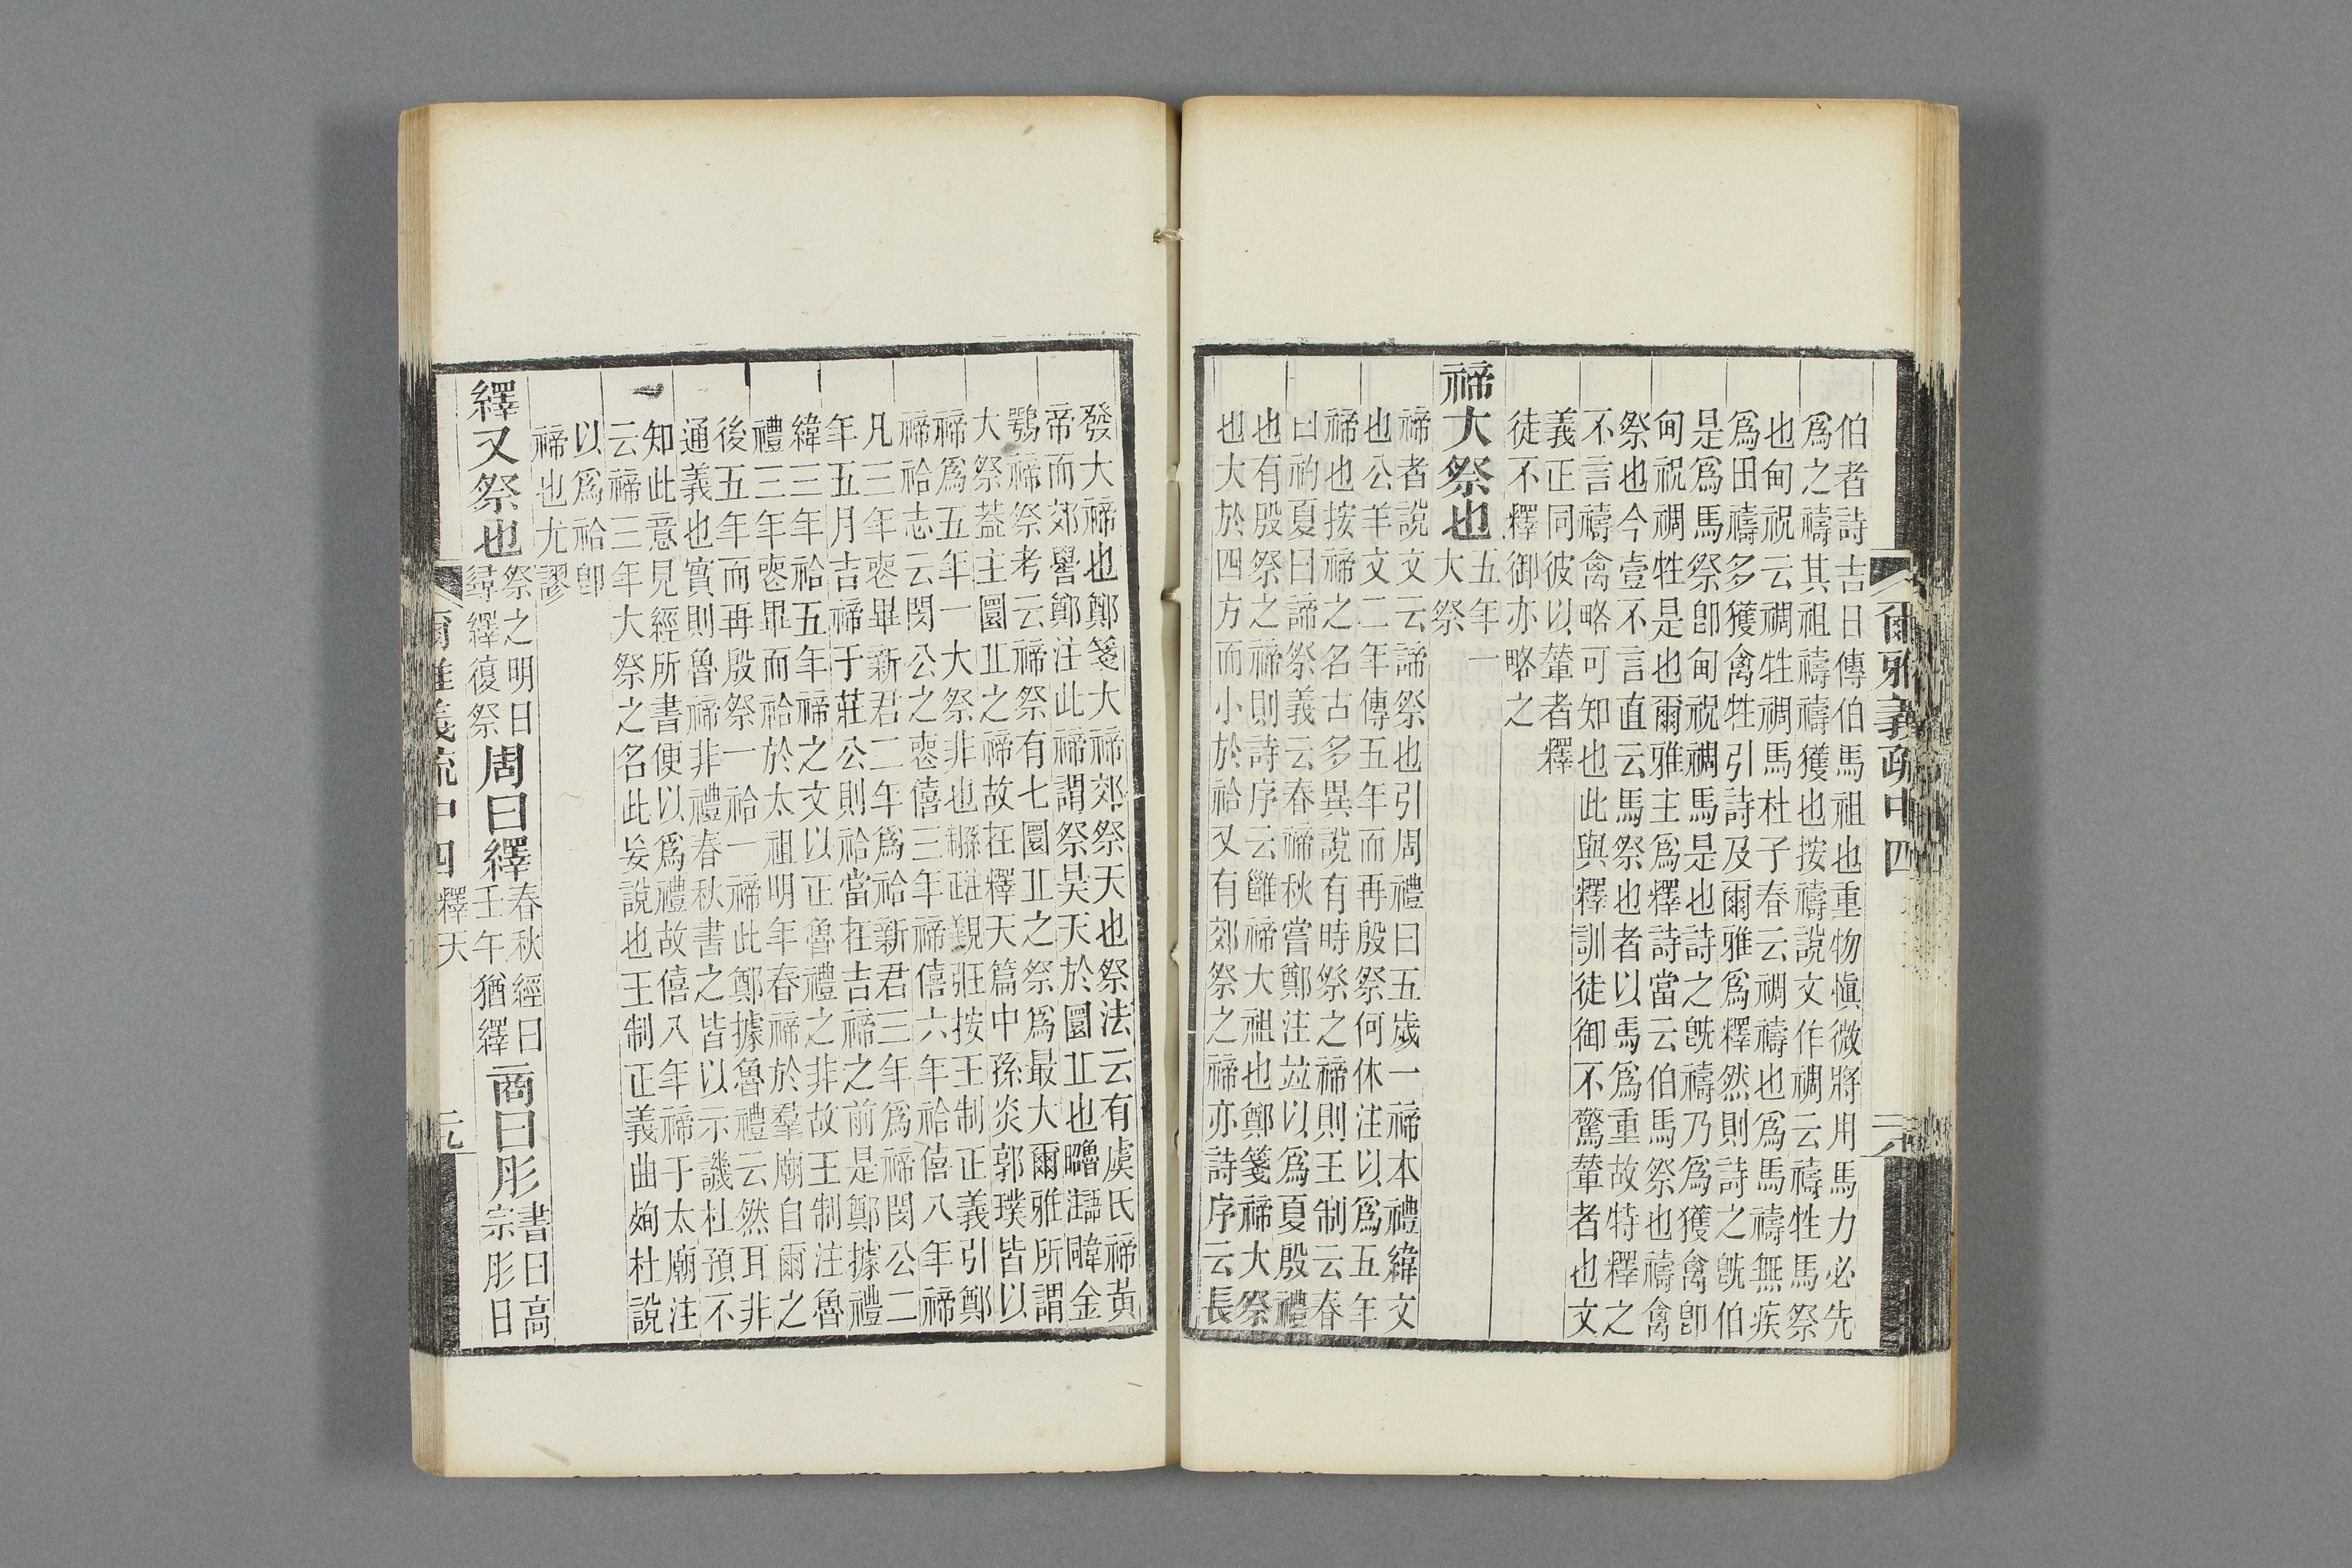 爾雅義疏中四
伯者詩吉日傳伯馬祖也重物愼微將用馬力必先
爲之禱其祖禱禱獲也按禱說文作禂云禱牲馬祭
也甸祝云禂牲禂馬杜子春云禂禱也爲馬禱無疾
爲田禱多獲禽牲引詩及爾雅爲釋然則詩之旣伯
是爲馬祭卽甸祝禂馬是也詩之旣禱乃爲獲禽卽
甸祝禂牲是也爾雅主爲釋詩當云伯馬祭也禱禽
祭也今壹不言直云馬祭也者以馬爲重故特釋之
不言禱禽略可知也此與釋訓徒御不驚輦者也文
義正同彼以輦者釋
徒不釋御亦略之
禘大祭也
五年一
大祭
禘者說文云諦祭也引周禮曰五歲一禘本禮緯文
也公羊文二年傳五年而再殷祭何休注以爲五年
禘也按禘之名古多異說有時祭之禘則王制云春
曰礿夏曰諦祭義云春禘秋嘗鄭注竝以爲夏殷禮
也有殷祭之禘則詩序云雝禘大祖也鄭箋禘大祭
也大於四方而小於祫又有郊祭之禘亦詩序云長
發大禘也鄭箋大禘郊祭天也祭法云有虞氏禘黃
帝而郊嚳鄭注此禘謂祭昊天於圜丘也
鶚禘祭考云禘祭有七圜丘之祭爲最大爾雅所謂
大祭葢主圜丘之禘故在釋天篇中孫炎郭璞皆以
禘爲五年一大祭非也按王制正義引鄭
禘祫志云閔公之喪僖三年禘僖六年祫僖八年禘
凡三年喪畢新君二年爲祫新君三年爲禘閔公二
年五月吉禘于莊公則祫當在吉禘之前是鄭據禮
緯三年祫五年禘之文以正魯禮之非故王制注魯
禮三年喪畢而祫於太祖明年春禘於羣廟自爾之
後五年而再殷祭一祫一禘此鄭據魯禮云然耳非
通義也實則魯禘非禮春秋書之皆以示譏杜預不
知此意見經所書便以爲禮故僖八年禘于太廟注
云禘三年大祭之名此妄說也王制正義曲徇杜說
以爲祫卽
禘也尤謬
繹又祭也
祭之明日
尋繹復祭
周曰繹
春秋經曰
壬午猶繹
商曰肜
書曰高
宗肜日
釋天